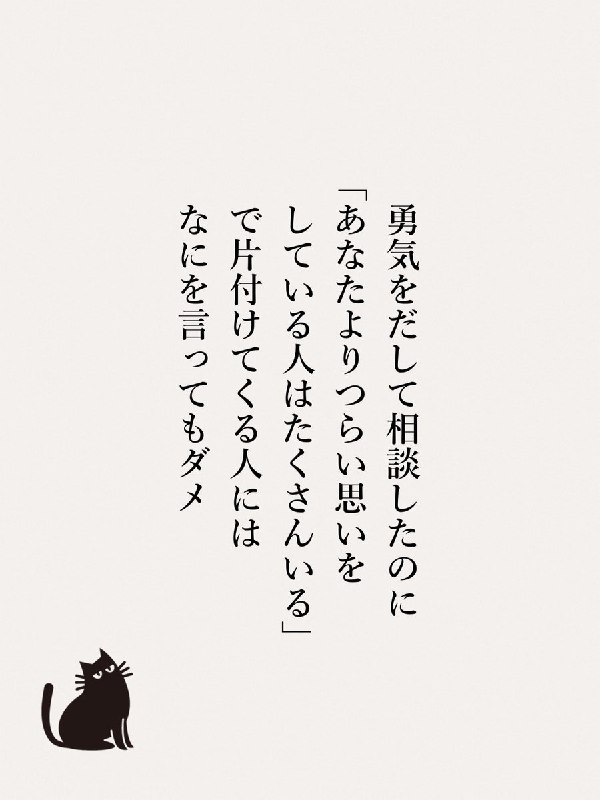 勇気をだして相談したのに
「あなたよりつらい思いを
している人はたくさんいる」
で片付けてくる人には
なにを言ってもダメ